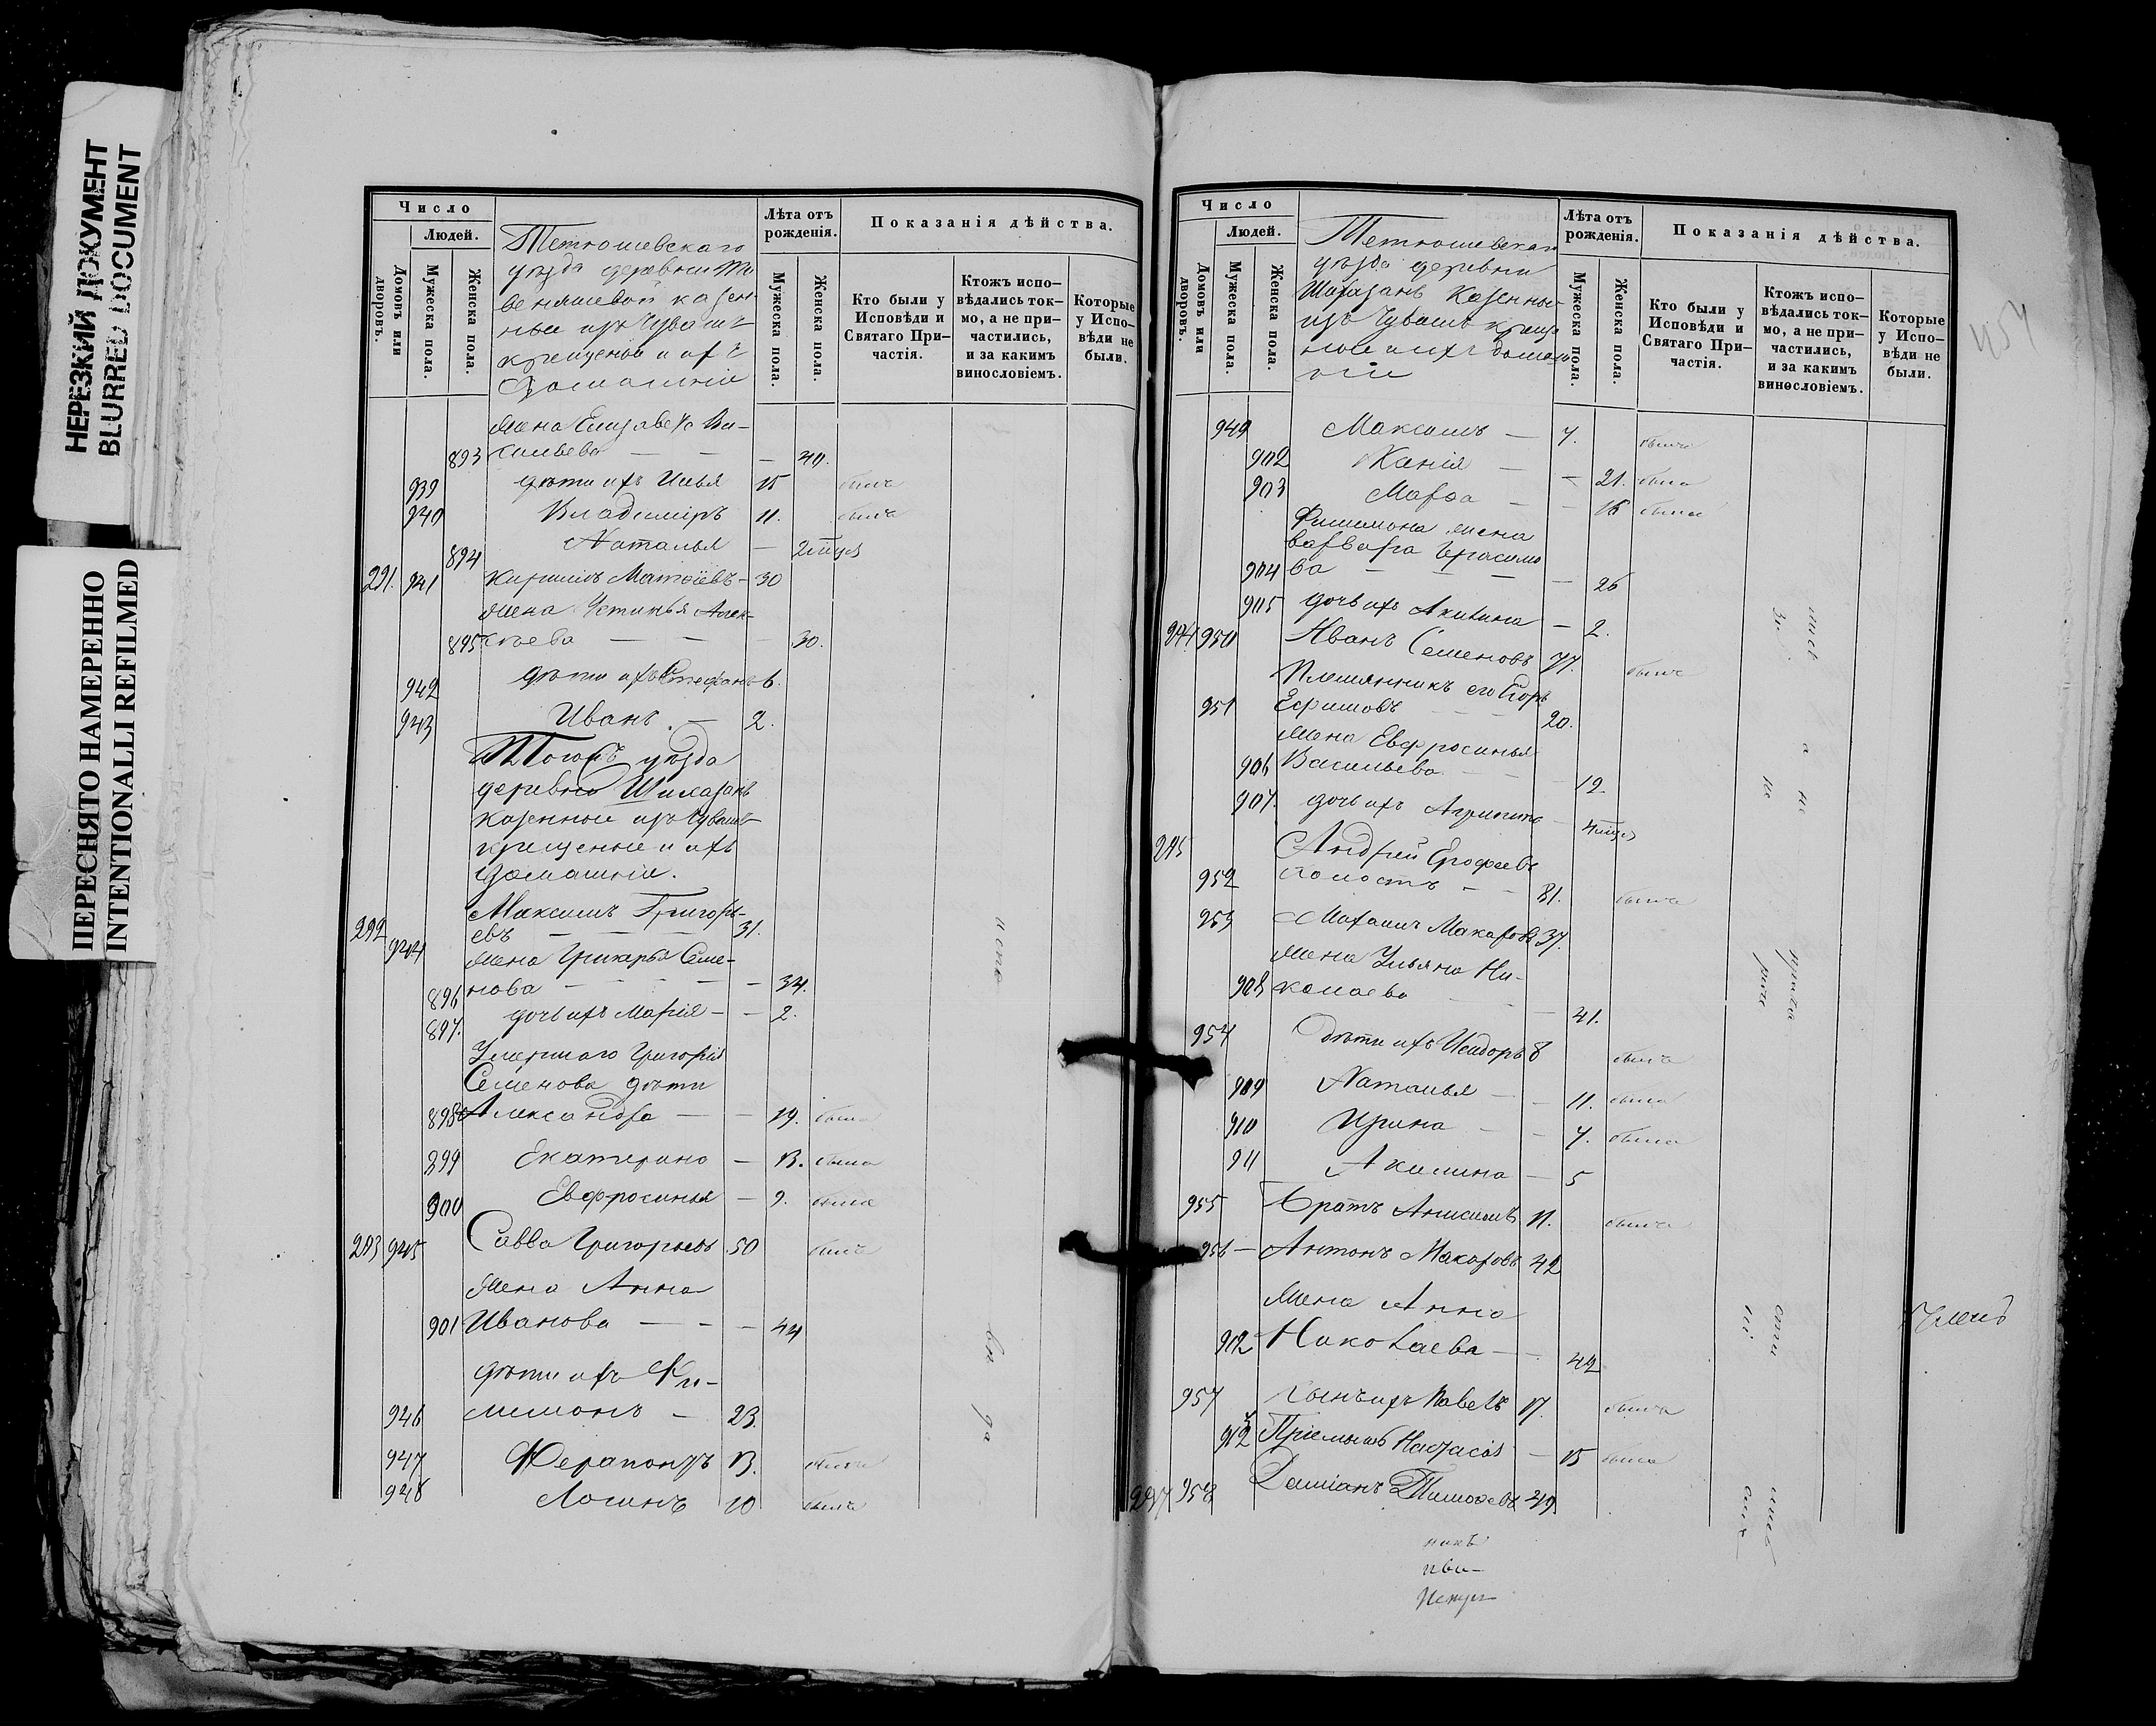 НЕРЕЗКИЙ ДОКУМЕНТ
BLURRED DOCUMENT
ПЕРЕСНЯТО НАМЕРЕННО
INTENTIONALLI REFILMED
Число
Людей.
Домовъ или дворовъ.
Мужеска пола.
Женска пола.
Тетюшевскаго
уѣзда деревни
казен-
ные изъ Чувашъ
крещеные и ихъ
домашніе
Лѣта отъ рожденія.
Мужеска пола.
Женска пола.
Показанія дѣйства.
Кто были у Исповѣди и Святаго При-частія.
Ктожъ испо-вѣдались ток-мо, а не при-частились, и за какимъ винословіемъ.
Которые у Испо-вѣди не были.
жена Елизавета Ва-
893 сильева — — — 40.
939 дѣти ихъ Илья 15 былъ
940 Владиміръ 11. былъ
894 Наталья — 2
291. 941 Кирилъ Матѳіевъ — 30
жена Устинья Алек-
895 сѣева — — — 30.
942 дѣти ихъ Стефанъ 6.
943 Иванъ — 2.
Тогожъ уѣзда
деревни Шигазанъ
казенные изъ Чувашъ
крещенные и ихъ
домашніе.
Максимъ Григорь-
292 944 евъ — — — 31.
жена Гликерья Семе-
896 нова — — — — 34.
897. дочь ихъ Марія — — 2.
Умершаго Григорія
Семенова дѣти
898 Александра — — 19. была
899 Екатерина — 13. была
900 Евфросинья — 9. была
293 945 Савва Григорьевъ 50 былъ
жена Анна
901 Иванова — — — 44
дѣти ихъ Фи-
946 лимонъ — 23.
947 Ферапонтъ 13. былъ
948 Логинъ 10 былъ
испо
вѣ
да
Число
Людей.
Домовъ или дворовъ.
Мужеска пола.
Женска пола.
Тетюшевскаго
уѣзда деревни
Шигазанъ казенные
изъ Чувашъ креще
ные и ихъ домаш
ніе
Лѣта отъ рожденія.
Мужеска пола.
Женска пола.
Показанія дѣйства.
Кто были у Исповѣди и Святаго При-частія.
Ктожъ испо-вѣдались ток-мо, а не при-частились, и за какимъ винословіемъ.
Которые у Испо-вѣди не были.
949 Максимъ — 7. былъ
902 — — 21. была
903 Марѳа — — 16 была
Филимона жена
Варвара Герасимо
904 ва — — — — 26
905 дочь ихъ Акилина — 2.
294 950 Иванъ Семеновъ 77. былъ
Племянникъ его Егоръ
951 Ефимовъ — — 20.
жена Евфросинья
906 Васильева — — — 19.
907. дочь ихъ Агрипина — 4
295 Андрей Ерофеевъ
952 холостъ — — 81. былъ
953 Михаилъ Макаровъ 37.
жена Ульяна Ни-
908 колаева — — — 41.
954 дѣти ихъ Исидоръ 8 былъ
909 Наталья — — 11. была
910 Ирина — — 7. была
911 Акилина — 5
955 Братъ Анисимъ 11. былъ
956 — Антонъ Макаровъ 42
жена Анна
912 Николаева — — 42
957 сынъ ихъ Павелъ 17. былъ
Пріемышъ — 15 была
297 958 Даміанъ Тимоѳевъ 49